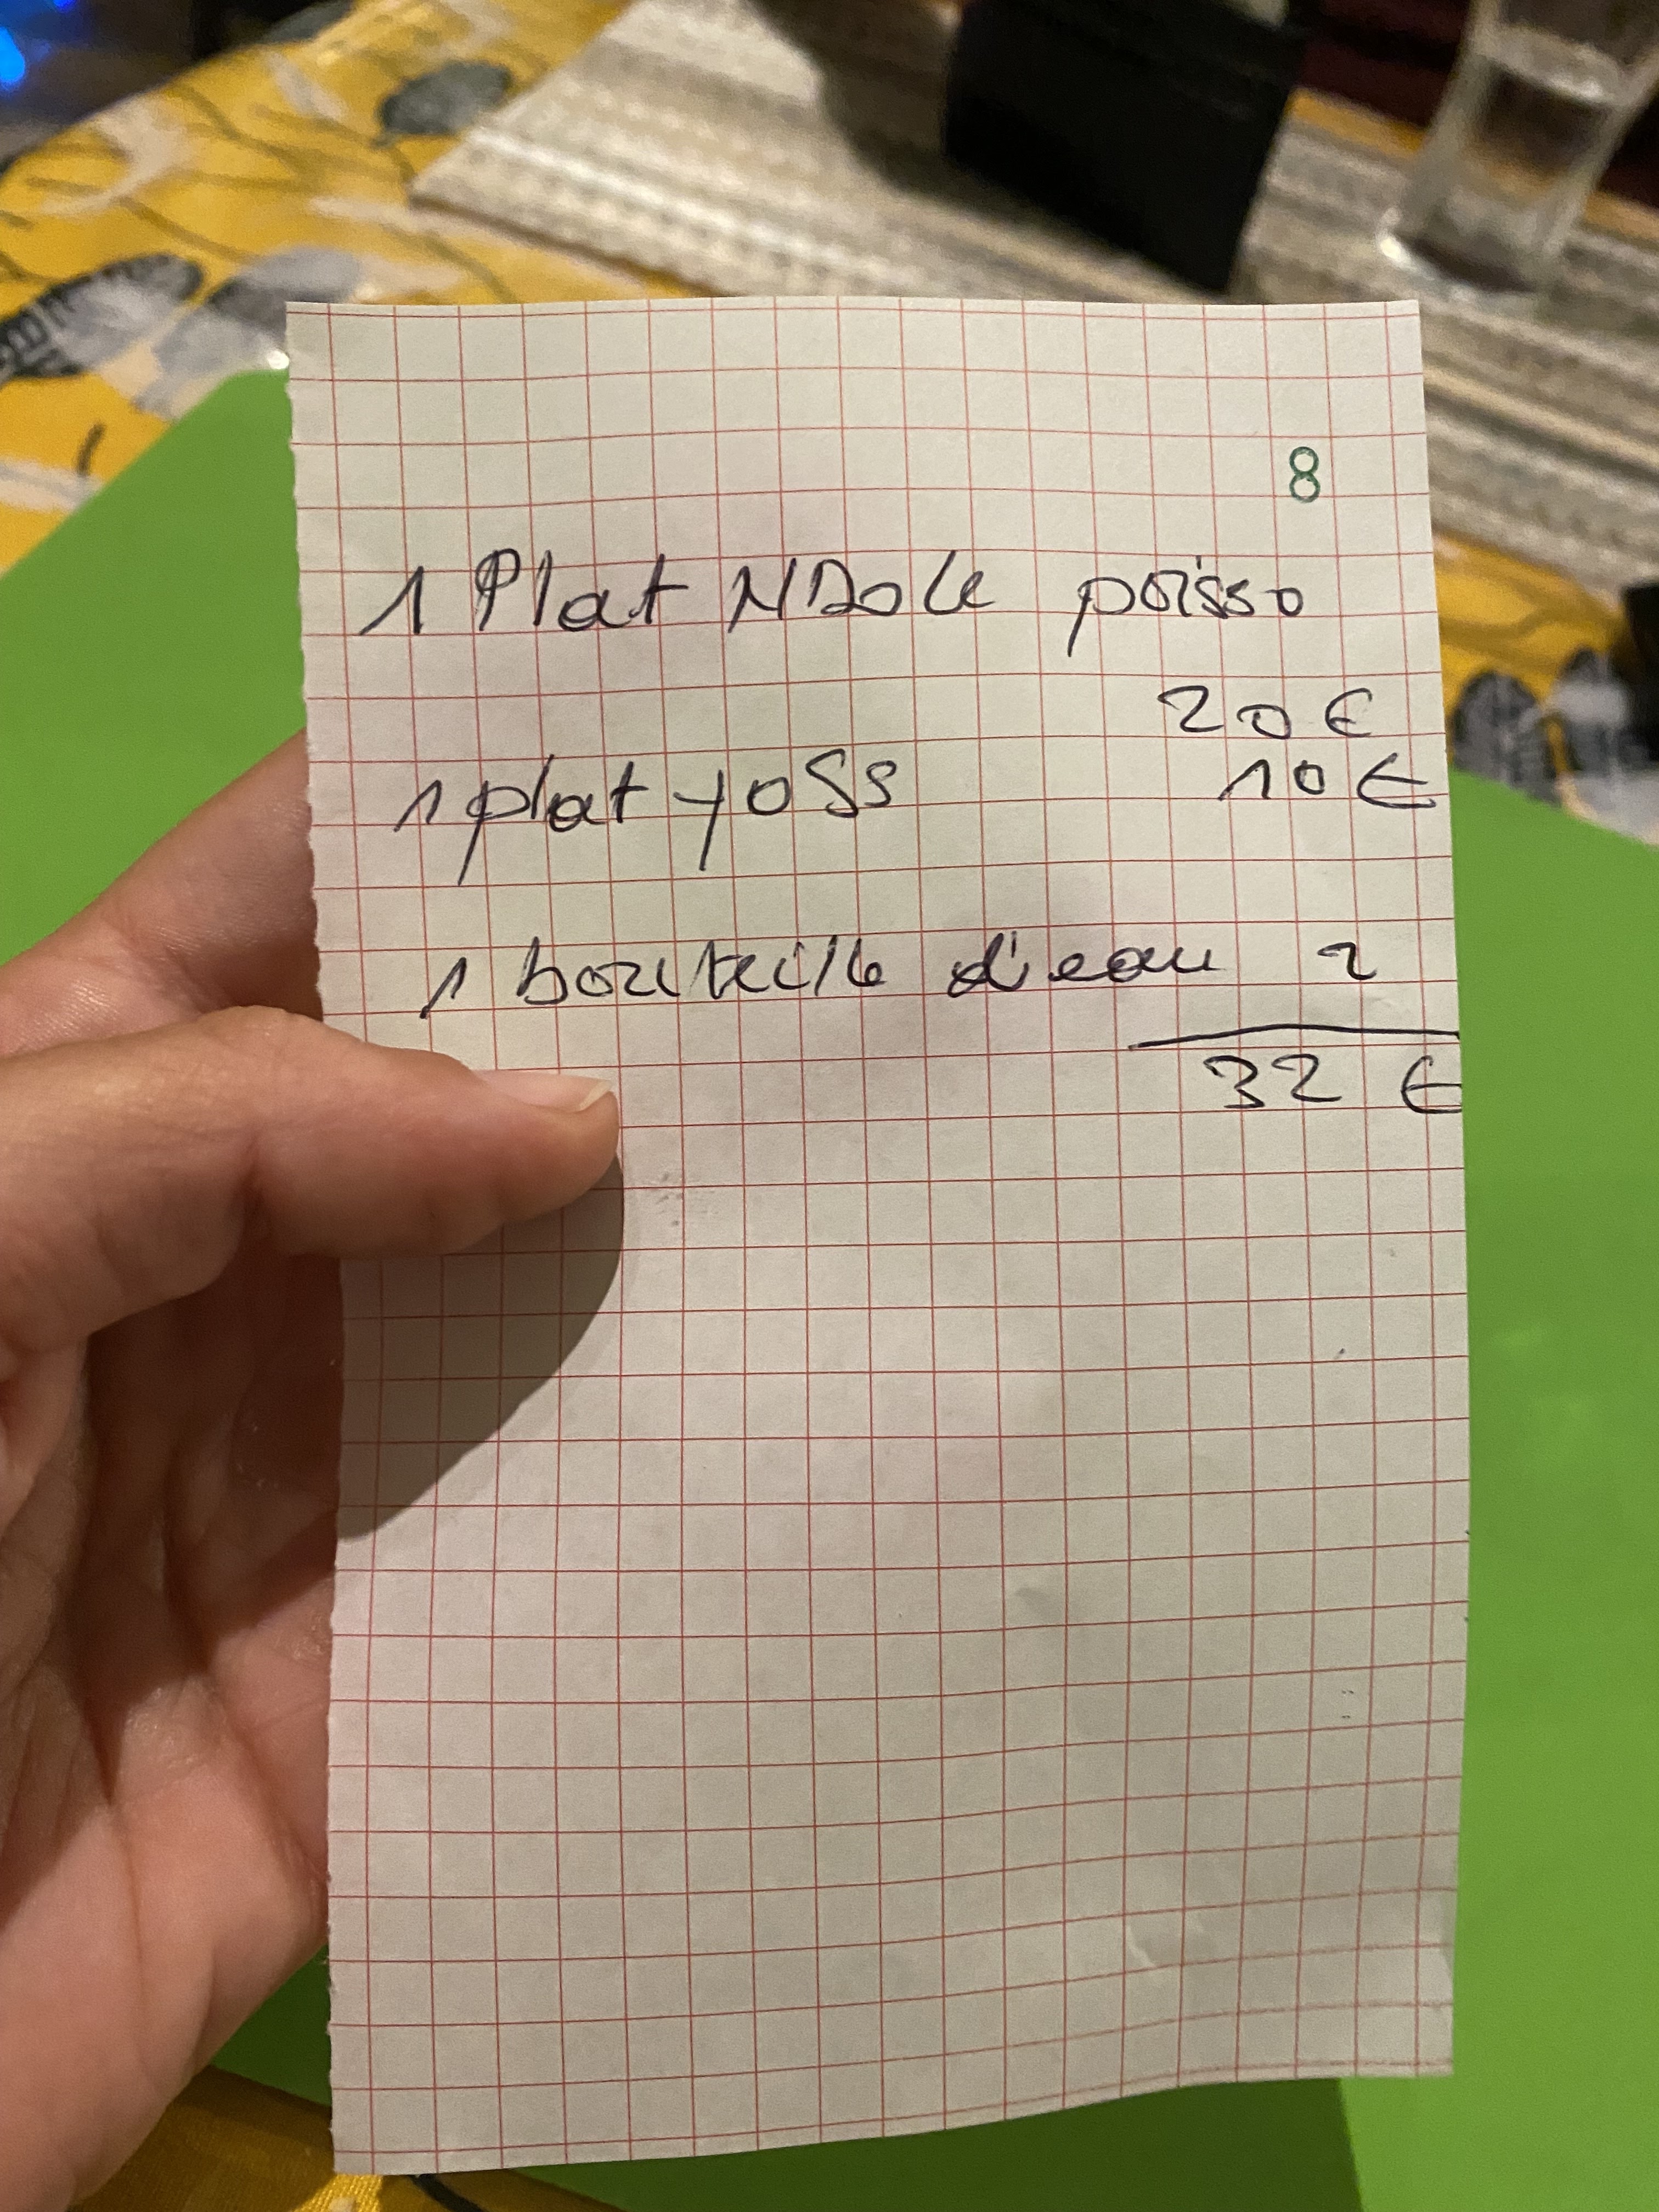 8
1 Plat NDolé poisso
20 €
1 plat yoss 10 €
1 bouteille d'eau 2
32 €